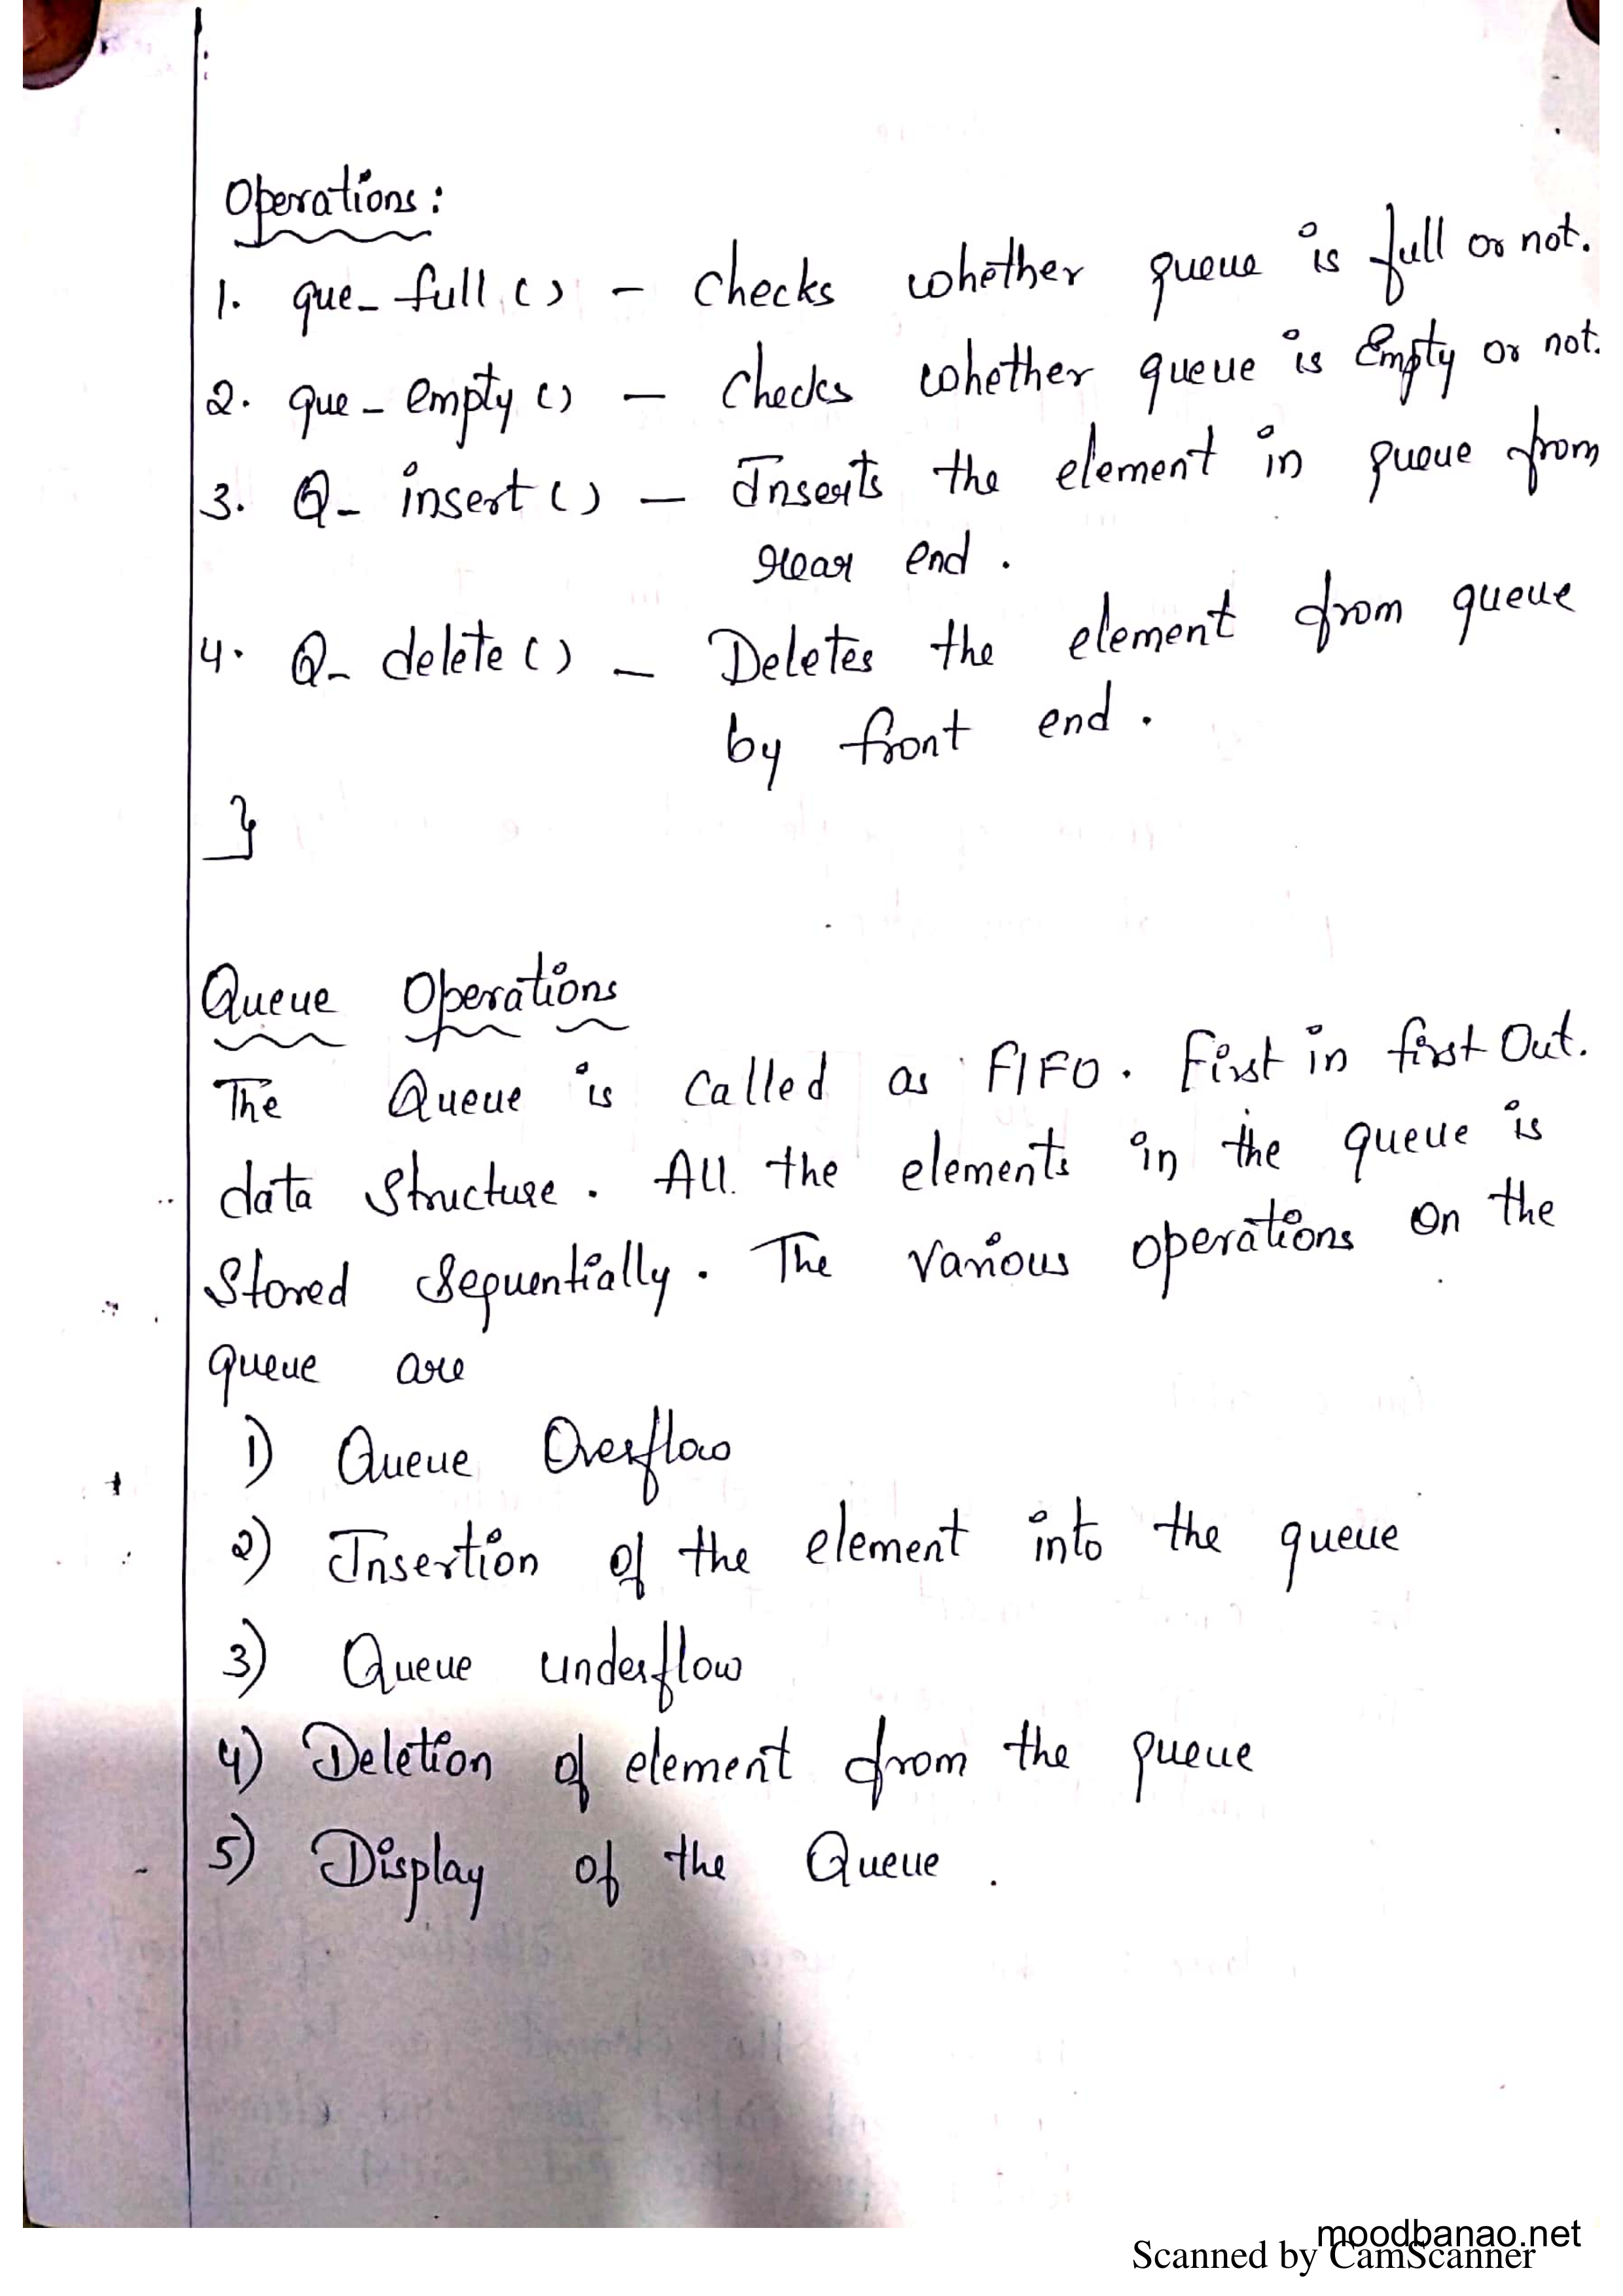 Operations:
1. que_full() - Checks whether queue is full or not.
2. que_empty() - Checks whether queue is Empty or not.
3. Q_insert() - Inserts the element in queue from
rear end.
4. Q_delete() - Deletes the element from queue
by front end.
}
Queue Operations
The Queue is called as FIFO. First in first Out.
data structure. All the elements in the queue is
Stored Sequentially. The Various operations on the
queue are
1) Queue Overflow
2) Insertion of the element into the queue
3) Queue underflow
4) Deletion of element from the queue
5) Display of the Queue.
moodbanao.net
Scanned by CamScanner